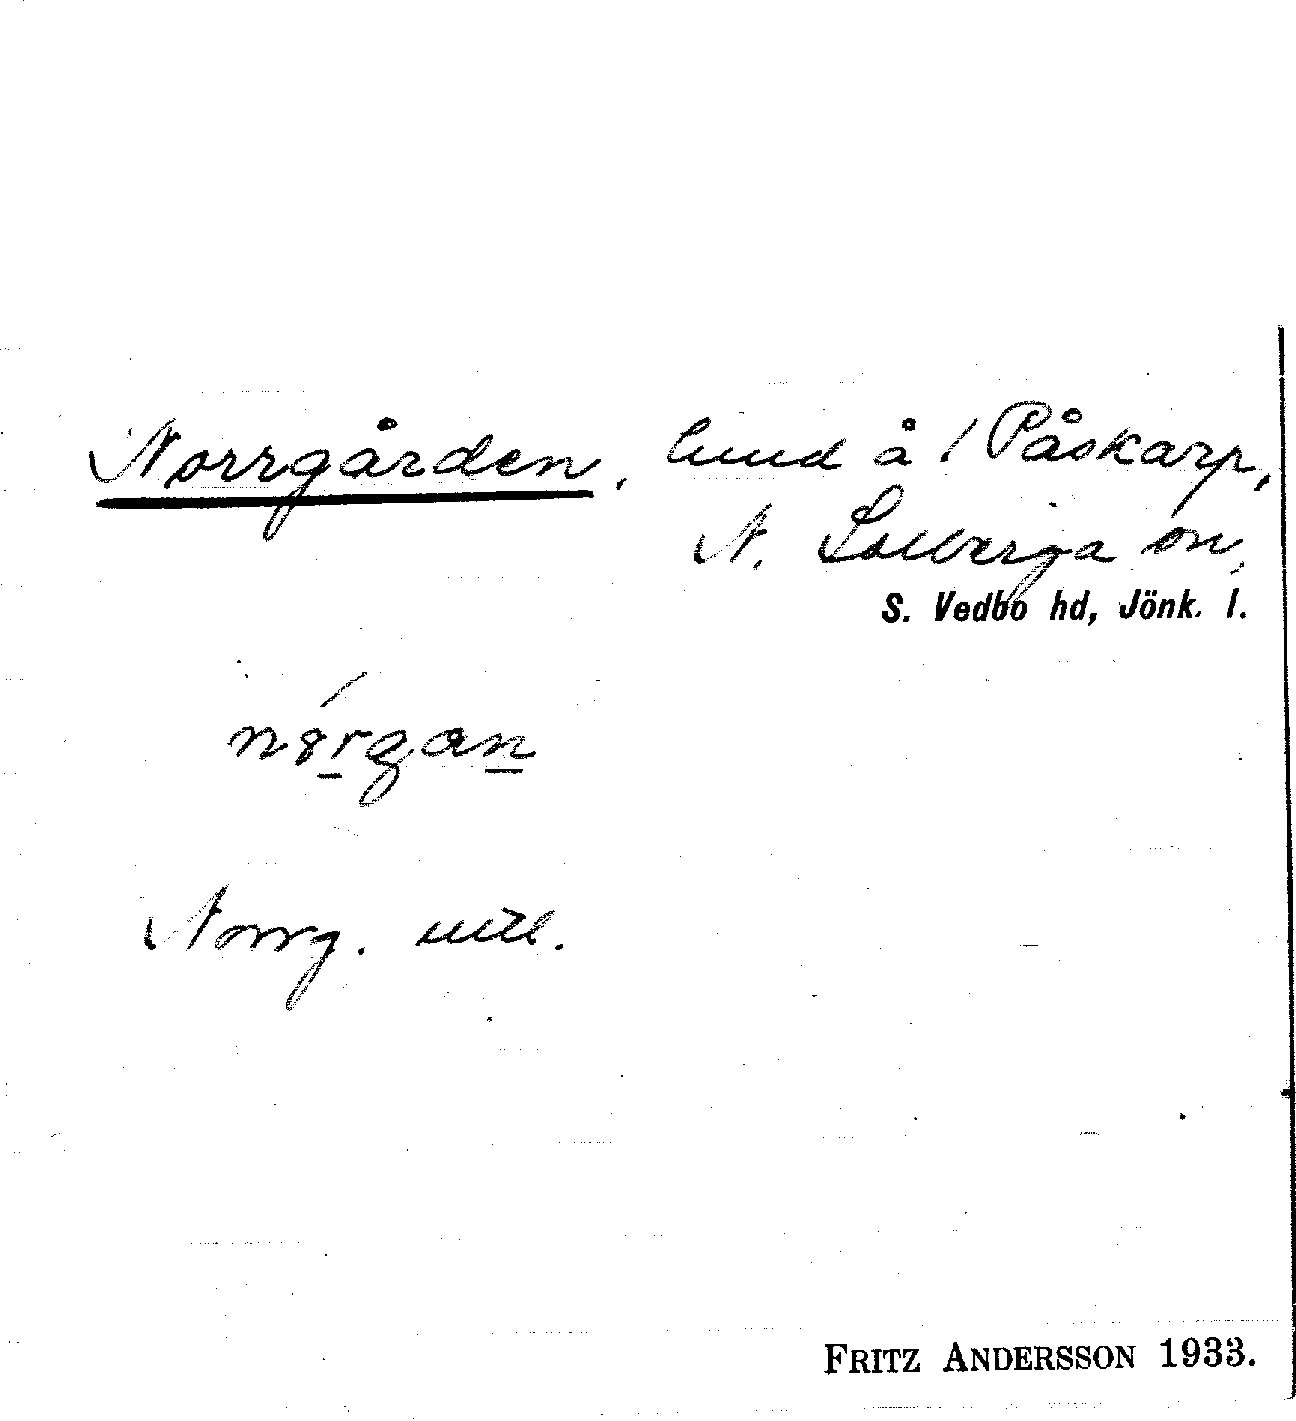 Norrgården, lund å / Påskarp,
N. Solberga sn,
S. Vedbo hd, Jönk. l.
Norrg. uttl.
FRITZ ANDERSSON 1933.